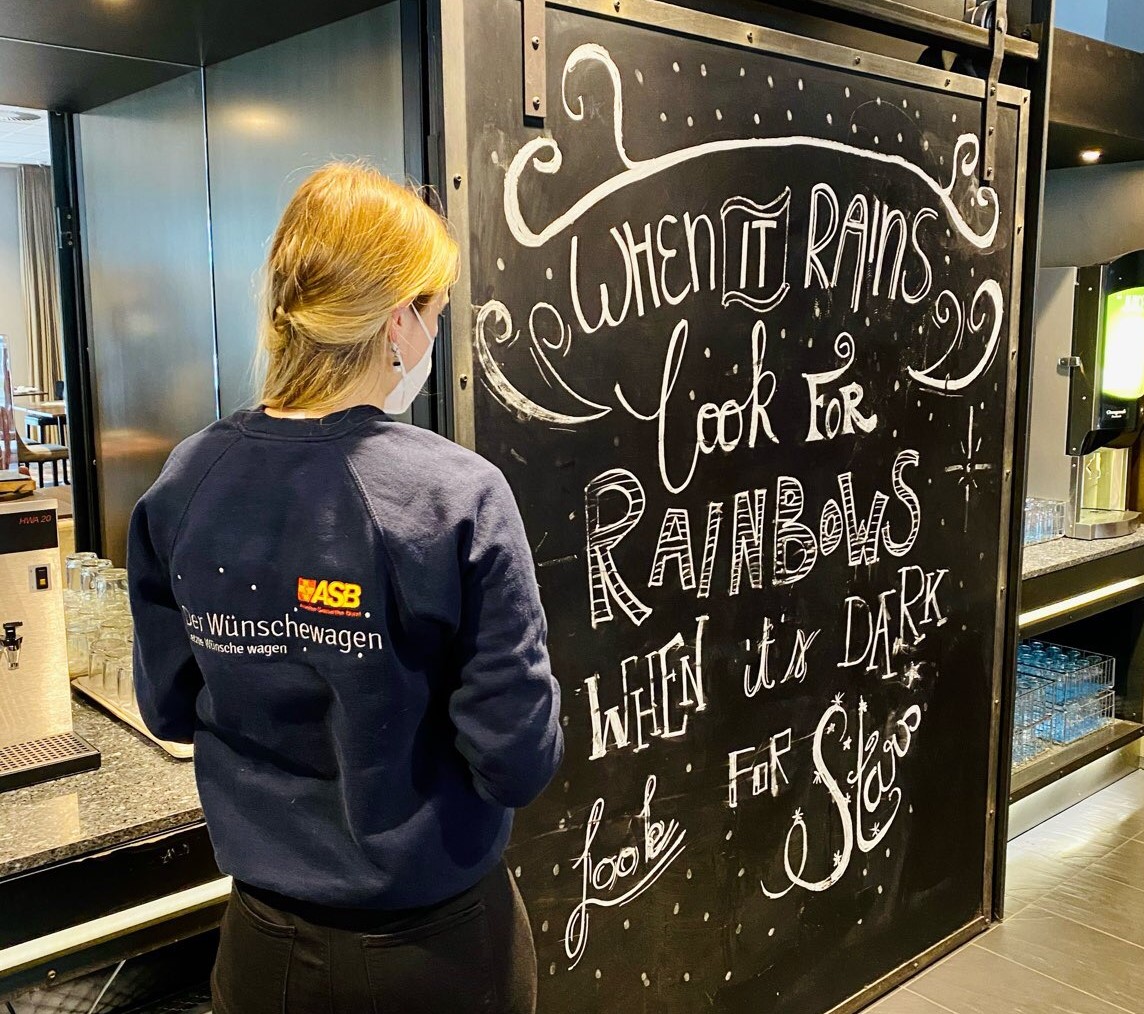 WHEN IT RAINS
look FOR
RAINBOWS
WHEN it's DARK
look FOR Stars
HWA 20
ASB
Der Wünschewagen
letzte Wünsche wagen